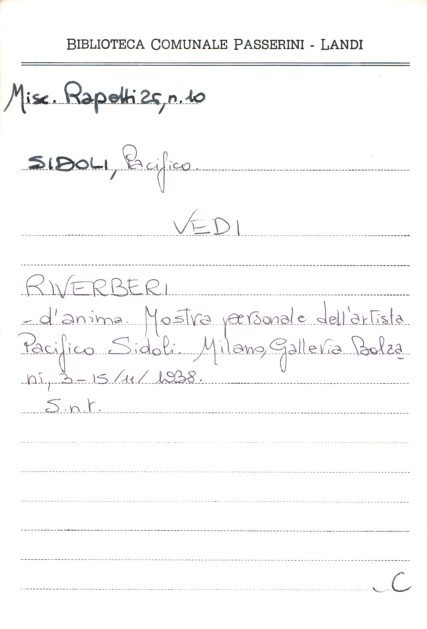 BIBLIOTECA COMUNALE PASSERINI - LANDI
Misc. Rapetti 25, n. 10
SIDOLI, Pacifico.
VEDI
RIVERBERI
- d'anima. Mostra personale dell'artista
Pacifico Sidoli. Milano, Galleria Bolza
ni, 3-15/11/1938.
S.n.t.
C